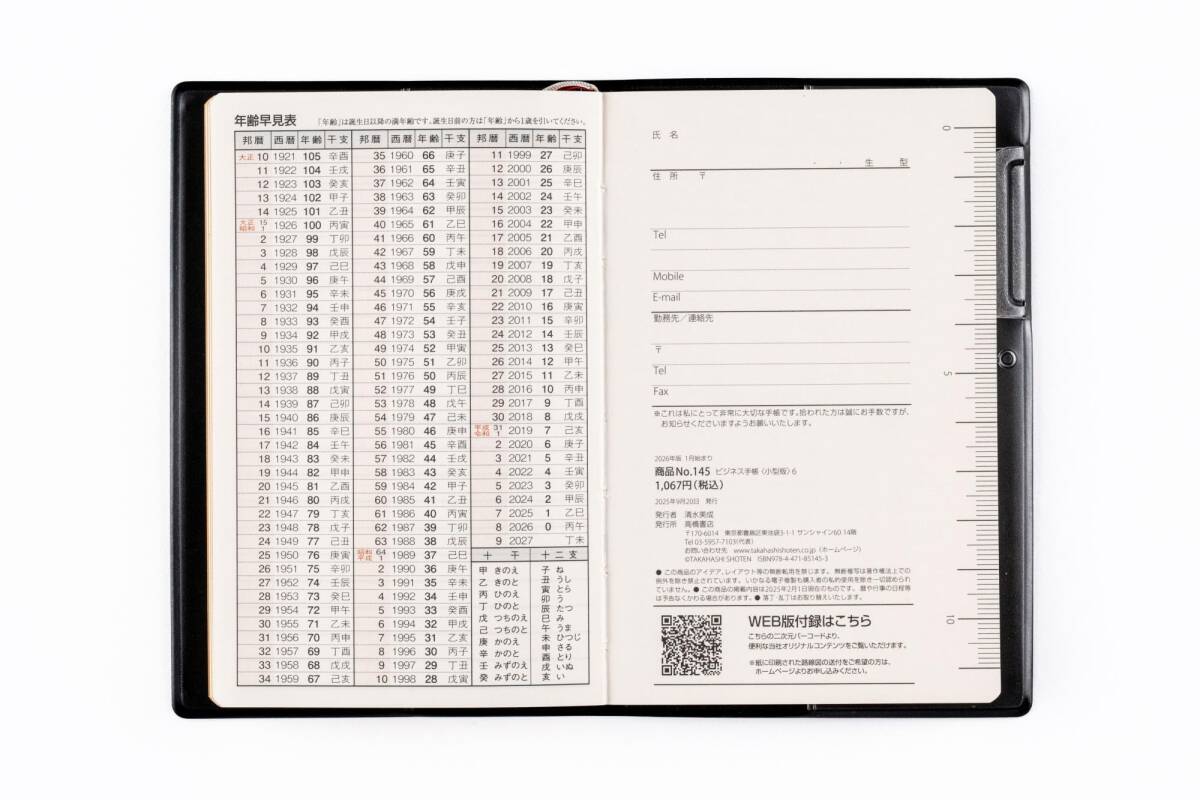 年齢早見表 「年齢」は誕生日以降の満年齢です。誕生日前の方は「年齢」から1歳を引いてください。
邦暦 西暦 年齢 干支 邦暦 西暦 年齢 干支 邦暦 西暦 年齢 干支
大正 10 1921 105 辛酉 35 1960 66 庚子 11 1999 27 己卯
11 1922 104 壬戌 36 1961 65 辛丑 12 2000 26 庚辰
12 1923 103 癸亥 37 1962 64 壬寅 13 2001 25 辛巳
13 1924 102 甲子 38 1963 63 癸卯 14 2002 24 壬午
14 1925 101 乙丑 39 1964 62 甲辰 15 2003 23 癸未
大正 15 昭和 1 1926 100 丙寅 40 1965 61 乙巳 16 2004 22 甲申
2 1927 99 丁卯 41 1966 60 丙午 17 2005 21 乙酉
3 1928 98 戊辰 42 1967 59 丁未 18 2006 20 丙戌
4 1929 97 己巳 43 1968 58 戊申 19 2007 19 丁亥
5 1930 96 庚午 44 1969 57 己酉 20 2008 18 戊子
6 1931 95 辛未 45 1970 56 庚戌 21 2009 17 己丑
7 1932 94 壬申 46 1971 55 辛亥 22 2010 16 庚寅
8 1933 93 癸酉 47 1972 54 壬子 23 2011 15 辛卯
9 1934 92 甲戌 48 1973 53 癸丑 24 2012 14 壬辰
10 1935 91 乙亥 49 1974 52 甲寅 25 2013 13 癸巳
11 1936 90 丙子 50 1975 51 乙卯 26 2014 12 甲午
12 1937 89 丁丑 51 1976 50 丙辰 27 2015 11 乙未
13 1938 88 戊寅 52 1977 49 丁巳 28 2016 10 丙申
14 1939 87 己卯 53 1978 48 戊午 29 2017 9 丁酉
15 1940 86 庚辰 54 1979 47 己未 30 2018 8 戊戌
16 1941 85 辛巳 55 1980 46 庚申 平成 31 令和 1 2019 7 己亥
17 1942 84 壬午 56 1981 45 辛酉 2 2020 6 庚子
18 1943 83 癸未 57 1982 44 壬戌 3 2021 5 辛丑
19 1944 82 甲申 58 1983 43 癸亥 4 2022 4 壬寅
20 1945 81 乙酉 59 1984 42 甲子 5 2023 3 癸卯
21 1946 80 丙戌 60 1985 41 乙丑 6 2024 2 甲辰
22 1947 79 丁亥 61 1986 40 丙寅 7 2025 1 乙巳
23 1948 78 戊子 62 1987 39 丁卯 8 2026 0 丙午
24 1949 77 己丑 63 1988 38 戊辰 9 2027 丁未
25 1950 76 庚寅 昭和 64 平成 1 1989 37 己巳 十干 十二支
26 1951 75 辛卯 2 1990 36 庚午 甲 きのえ 子 ね
27 1952 74 壬辰 3 1991 35 辛未 乙 きのと 丑 うし
28 1953 73 癸巳 4 1992 34 壬申 丙 ひのえ 寅 とら
29 1954 72 甲午 5 1993 33 癸酉 丁 ひのと 卯 う
30 1955 71 乙未 6 1994 32 甲戌 戊 つちのえ 辰 たつ
31 1956 70 丙申 7 1995 31 乙亥 己 つちのと 巳 み
32 1957 69 丁酉 8 1996 30 丙子 庚 かのえ 午 うま
33 1958 68 戊戌 9 1997 29 丁丑 辛 かのと 未 ひつじ
34 1959 67 己亥 10 1998 28 戊寅 壬 みずのえ 申 さる
癸 みずのと 酉 とり
戌 いぬ
亥 い
氏名
・ ・ 生 型
住所 〒
Tel
Mobile
E-mail
勤務先／連絡先
〒
Tel
Fax
※これは私にとって非常に大切な手帳です。拾われた方は誠にお手数ですが、
お知らせくださいますようお願いいたします。
2026年版 1月始まり
商品No.145 ビジネス手帳〈小型版〉6
1,067円（税込）
2025年9月20日 発行
発行者 清水美成
発行所 高橋書店
〒170-6014 東京都豊島区東池袋3-1-1 サンシャイン60 14階
Tel 03-5957-7103（代表）
お問い合わせ先 www.takahashishoten.co.jp（ホームページ）
©TAKAHASHI SHOTEN ISBN978-4-471-85145-3
● この商品のアイデア、レイアウト等の無断転用を禁じます。 無断複写は著作権法上での
例外を除き禁止されています。いかなる電子複製も購入者の私的使用を除き一切認められ
ていません。● この商品の掲載内容は2025年2月1日現在のものです。 暦や行事の日程等
は予告なくかわる場合があります。● 落丁・乱丁はお取り替えいたします。
WEB版付録はこちら
こちらの二次元バーコードより、
便利な当社オリジナルコンテンツをご覧いただけます。
※紙に印刷された路線図の送付をご希望の方は、
ホームページよりお申し込みください。
0
5
10